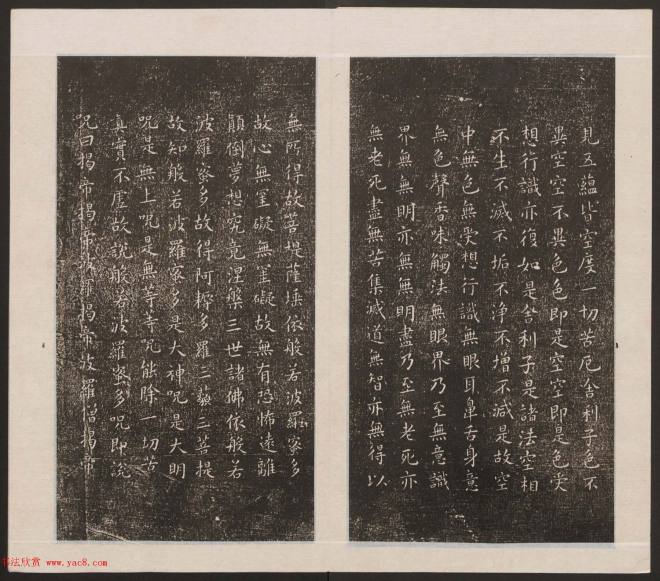 見五蘊皆空度一切苦厄舍利子色不
異空空不異色色即是空空即是色受
想行識亦復如是舍利子是諸法空相
不生不滅不垢不淨不增不減是故空
中無色無受想行識無眼耳鼻舌身意
無色聲香味觸法無眼界乃至無意識
界無無明亦無無明盡乃至無老死亦
無老死盡無苦集滅道無智亦無得以
無所得故菩提薩埵依般若波羅蜜多
故心無罣礙無罣礙故無有恐怖遠離
顛倒夢想究竟涅槃三世諸佛依般若
波羅蜜多故得阿耨多羅三藐三菩提
故知般若波羅蜜多是大神呪是大明
呪是無上呪是無等等呪能除一切苦
真實不虛故說般若波羅蜜多呪即說
呪曰揭帝揭帝波羅揭帝波羅僧揭帝
书法欣赏 www.yac8.com